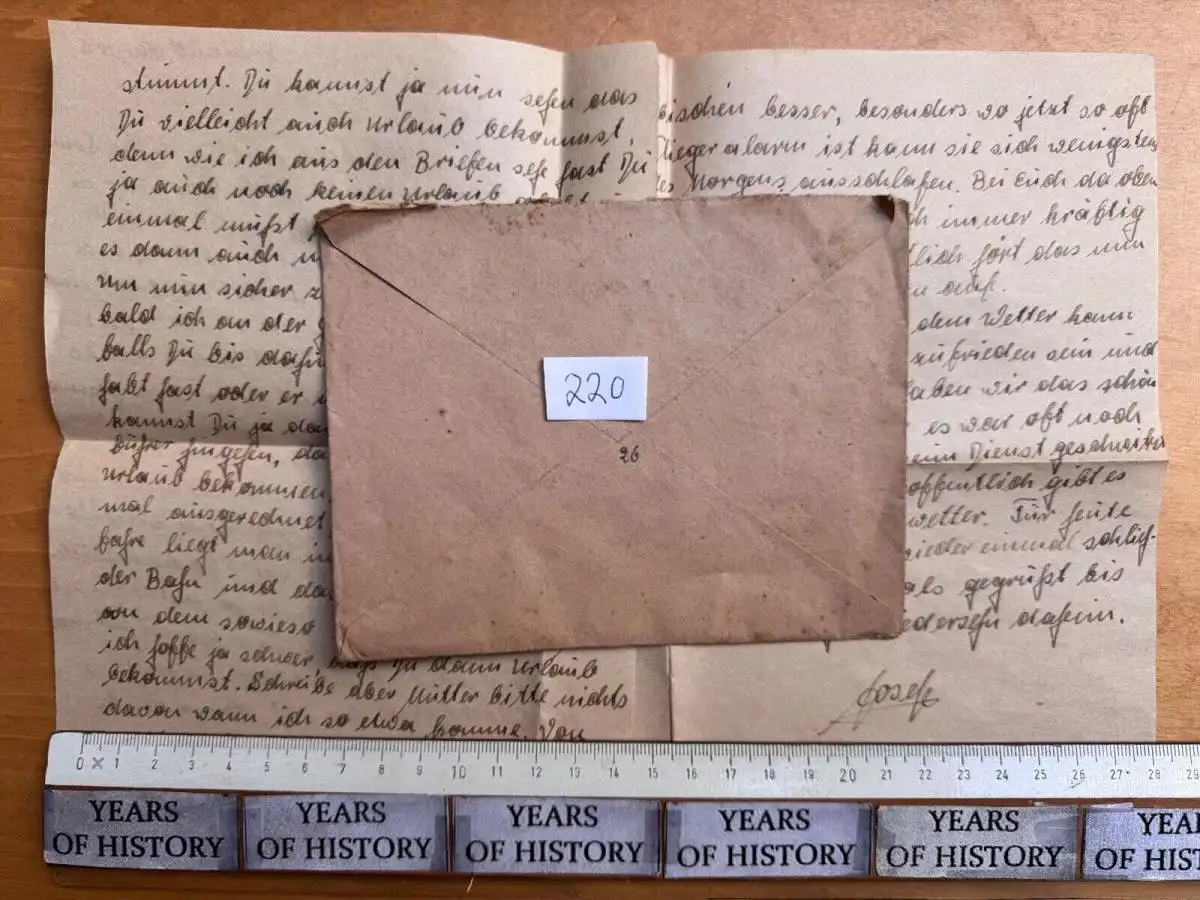 stimmt. Du kannst ja nun sehen das
Du vielleicht auch Urlaub bekommst,
denn wie ich aus den Briefen sehe hast Du
ja auch noch keinen Urlaub
einmal mußt
es dann auch
nun sicher
bald ich an der
falls Du bis dahin
habt hast oder er
kannst Du ja
Führer hingehen,
Urlaub bekommen
mal ausgerechnet
liegt man in
der Bahn und das
von dem sowieso
ich hoffe ja schwer, Du dann Urlaub
bekommst. Schreibe aber Mutter bitte nichts
davon wann ich so etwa komme. Von
bischen besser, besonders wo jetzt so oft
fliegeralarm ist kann sie sich wenigstens
Morgens ausschlafen. Bei Euch da oben
immer kräftig
hört das nun
auf.
dem Wetter kann
zufrieden sein und
haben wir das schön
es war oft noch
Dienst
hoffentlich gibt es
wetter. Für heute
wieder einmal schließ-
als gegrüßt bis
Wiedersehn daheim.
Josef
220
26
0 1 2 3 4 5 6 7 8 9 10 11 12 13 14 15 16 17 18 19 20 21 22 23 24 25 26 27 28 29
YEARS
OF HISTORY
YEARS
OF HISTORY
YEARS
OF HISTORY
YEARS
OF HISTORY
YEARS
OF HISTORY
YEA
OF HIST